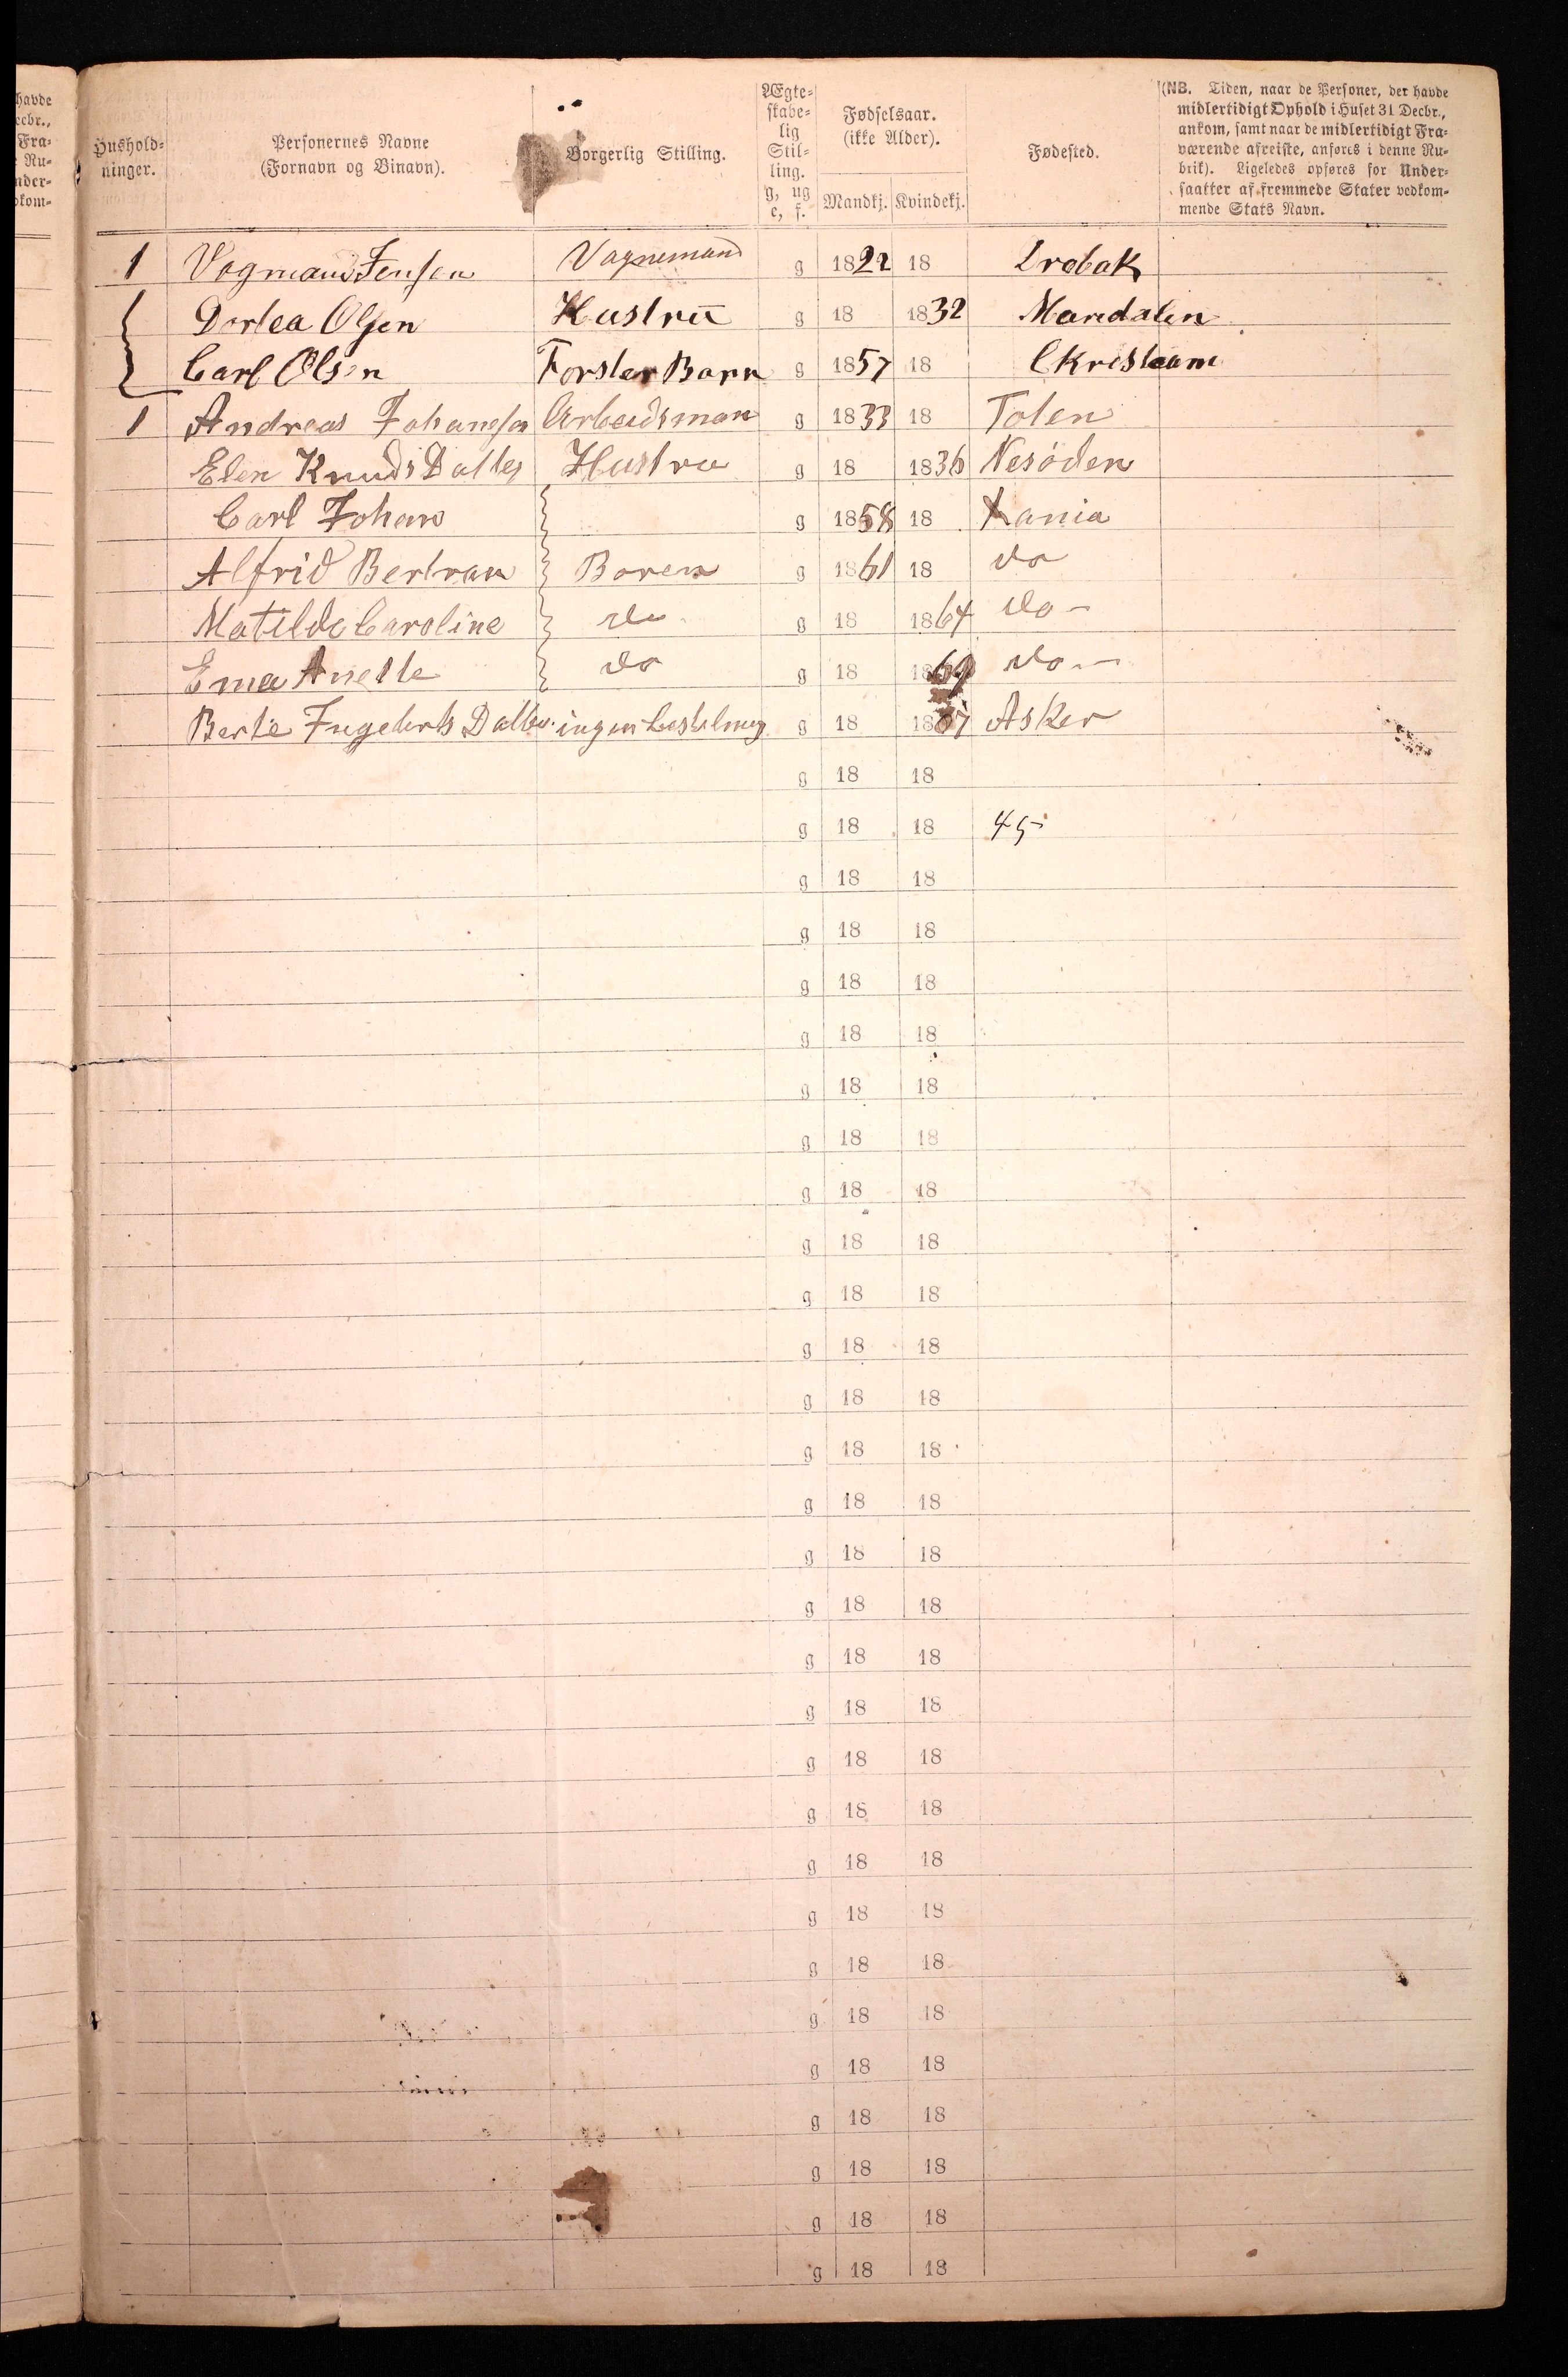 havde
ecbr.,
Fra-
Nu-
nder-
dkom-
Hushold-
ninger.
Personernes Navne
(Fornavn og Binavn).
Borgerlig Stilling.
Ægte-
skabe-
lig
Stil-
ling.
g, ug
e, f.
Fødselsaar.
(ikke Alder).
Mandkj. Kvindekj.
Fødested.
(NB. Tiden, naar de Personer, der havde
midlertidigt Ophold i Huset 31 Decbr.,
ankom, samt naar de midlertidigt Fra-
værende afreiste, anføres i denne Ru-
brik). Ligeledes opføres for Under-
saatter af fremmede Stater vedkom-
mende Stats Navn.
1 Vogmand Jensen Vognemand g 1822 18 Drobak
Dortea Olsen Hustru g 18 1832 Mandalen
Carl Olsen Forster Barn g 1857 18 Ckristiam
1 Andreas Johansen Arbeidsman g 1833 18 Toten
Elen Knuds Datter Hustru g 18 1836 Nesöden
Carl Johan g 1858 18 Kania
Alfrid Bertran Boren g 1861 18 do
Matilde Caroline do g 18 1864 do
Ema Anette do g 18 1869 do
Berte Ingeberts Datter ingen bestelning g 18 18 Asker
g 18 18
g 18 18 45
g 18 18
g 18 18
g 18 18
g 18 18
g 18 18
g 18 18
g 18 18
g 18 18
g 18 18
g 18 18
g 18 18
g 18 18
g 18 18
g 18 18
g 18 18
g 18 18
g 18 18
g 18 18
g 18 18
g 18 18
g 18 18
g 18 18
g 18 18
g 18 18
g 18 18
g 18 18
g 18 18
g 18 18